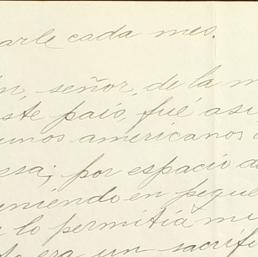 arle cada mes.
n, señor, de la m
ste país, fué así
unos americanos
esa; por espacio d
niendo en peque
lo permitiá mi
era un sacrifi